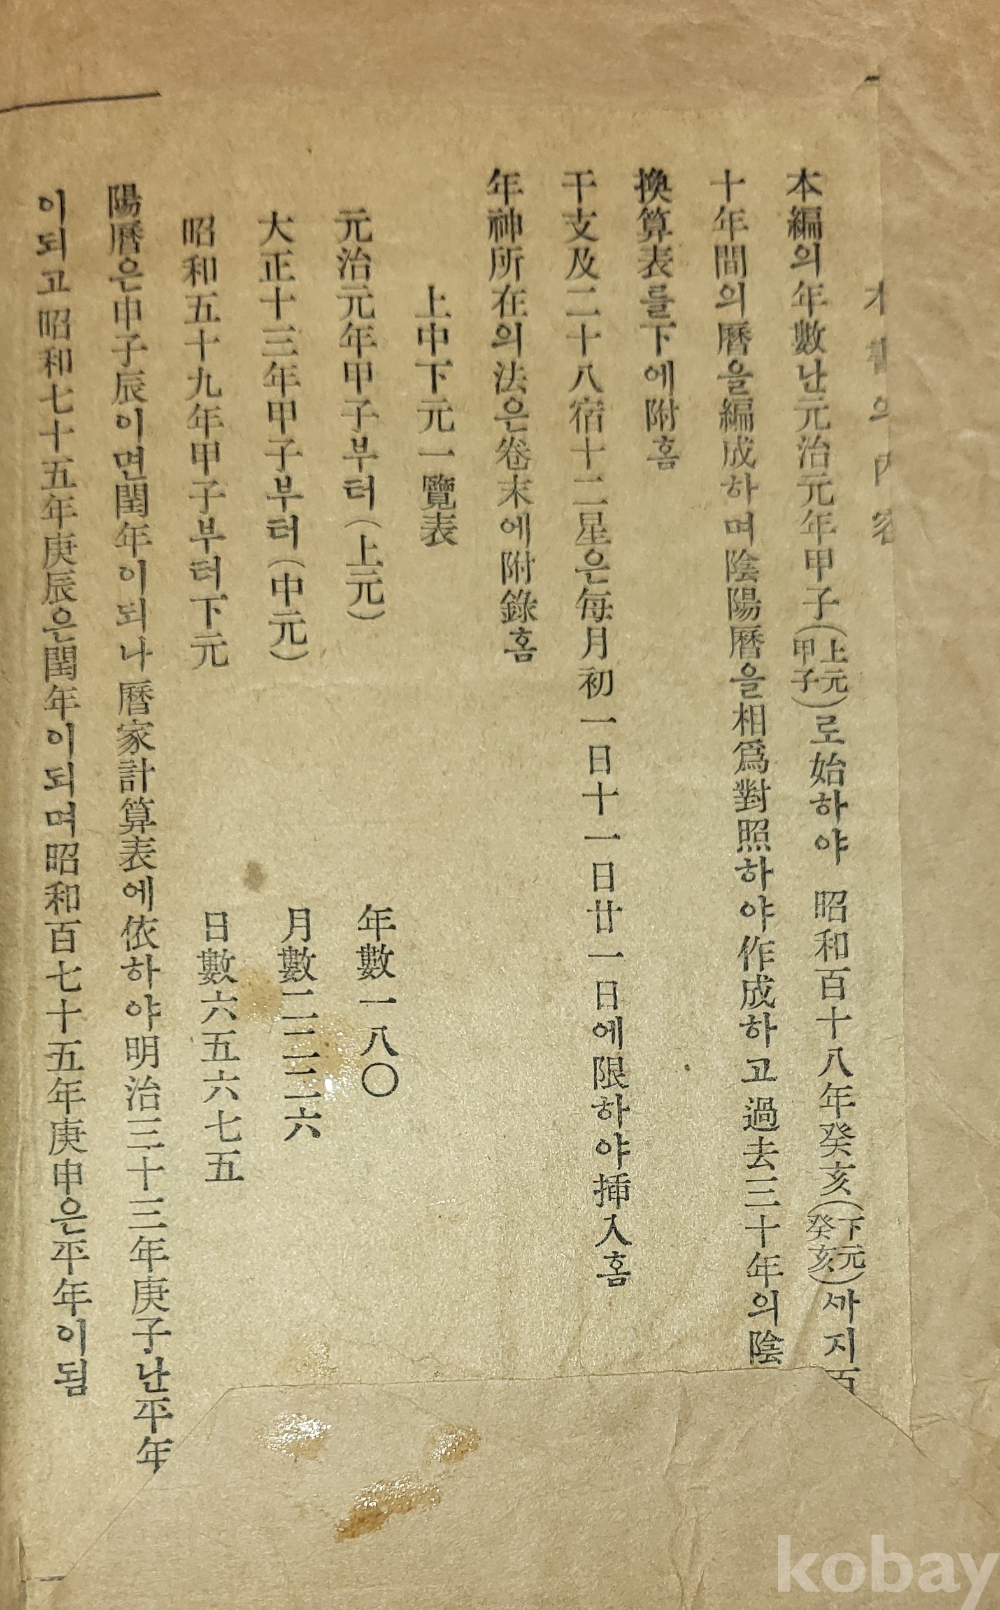 本書의內容
本編의年數난元治元年甲子(上元甲子)로始하야 昭和百十八年癸亥(下元癸亥)까지百
十年間의曆을編成하며陰陽曆을相爲對照하야作成하고過去三十年의陰
換算表를下에附홈
干支及二十八宿十二星은每月初一日十一日廿一日에限하야揷入홈
年神所在의法은卷末에附錄홈
上中下元一覽表
元治元年甲子부터(上元) 年數一八〇
大正十三年甲子부터(中元) 月數二二二六
昭和五十九年甲子부터下元 日數六五六七五
陽曆은申子辰이면閏年이되나曆家計算表에依하야明治三十三年庚子난平年
이되고昭和七十五年庚辰은閏年이되며昭和百七十五年庚申은平年이됨
kobay